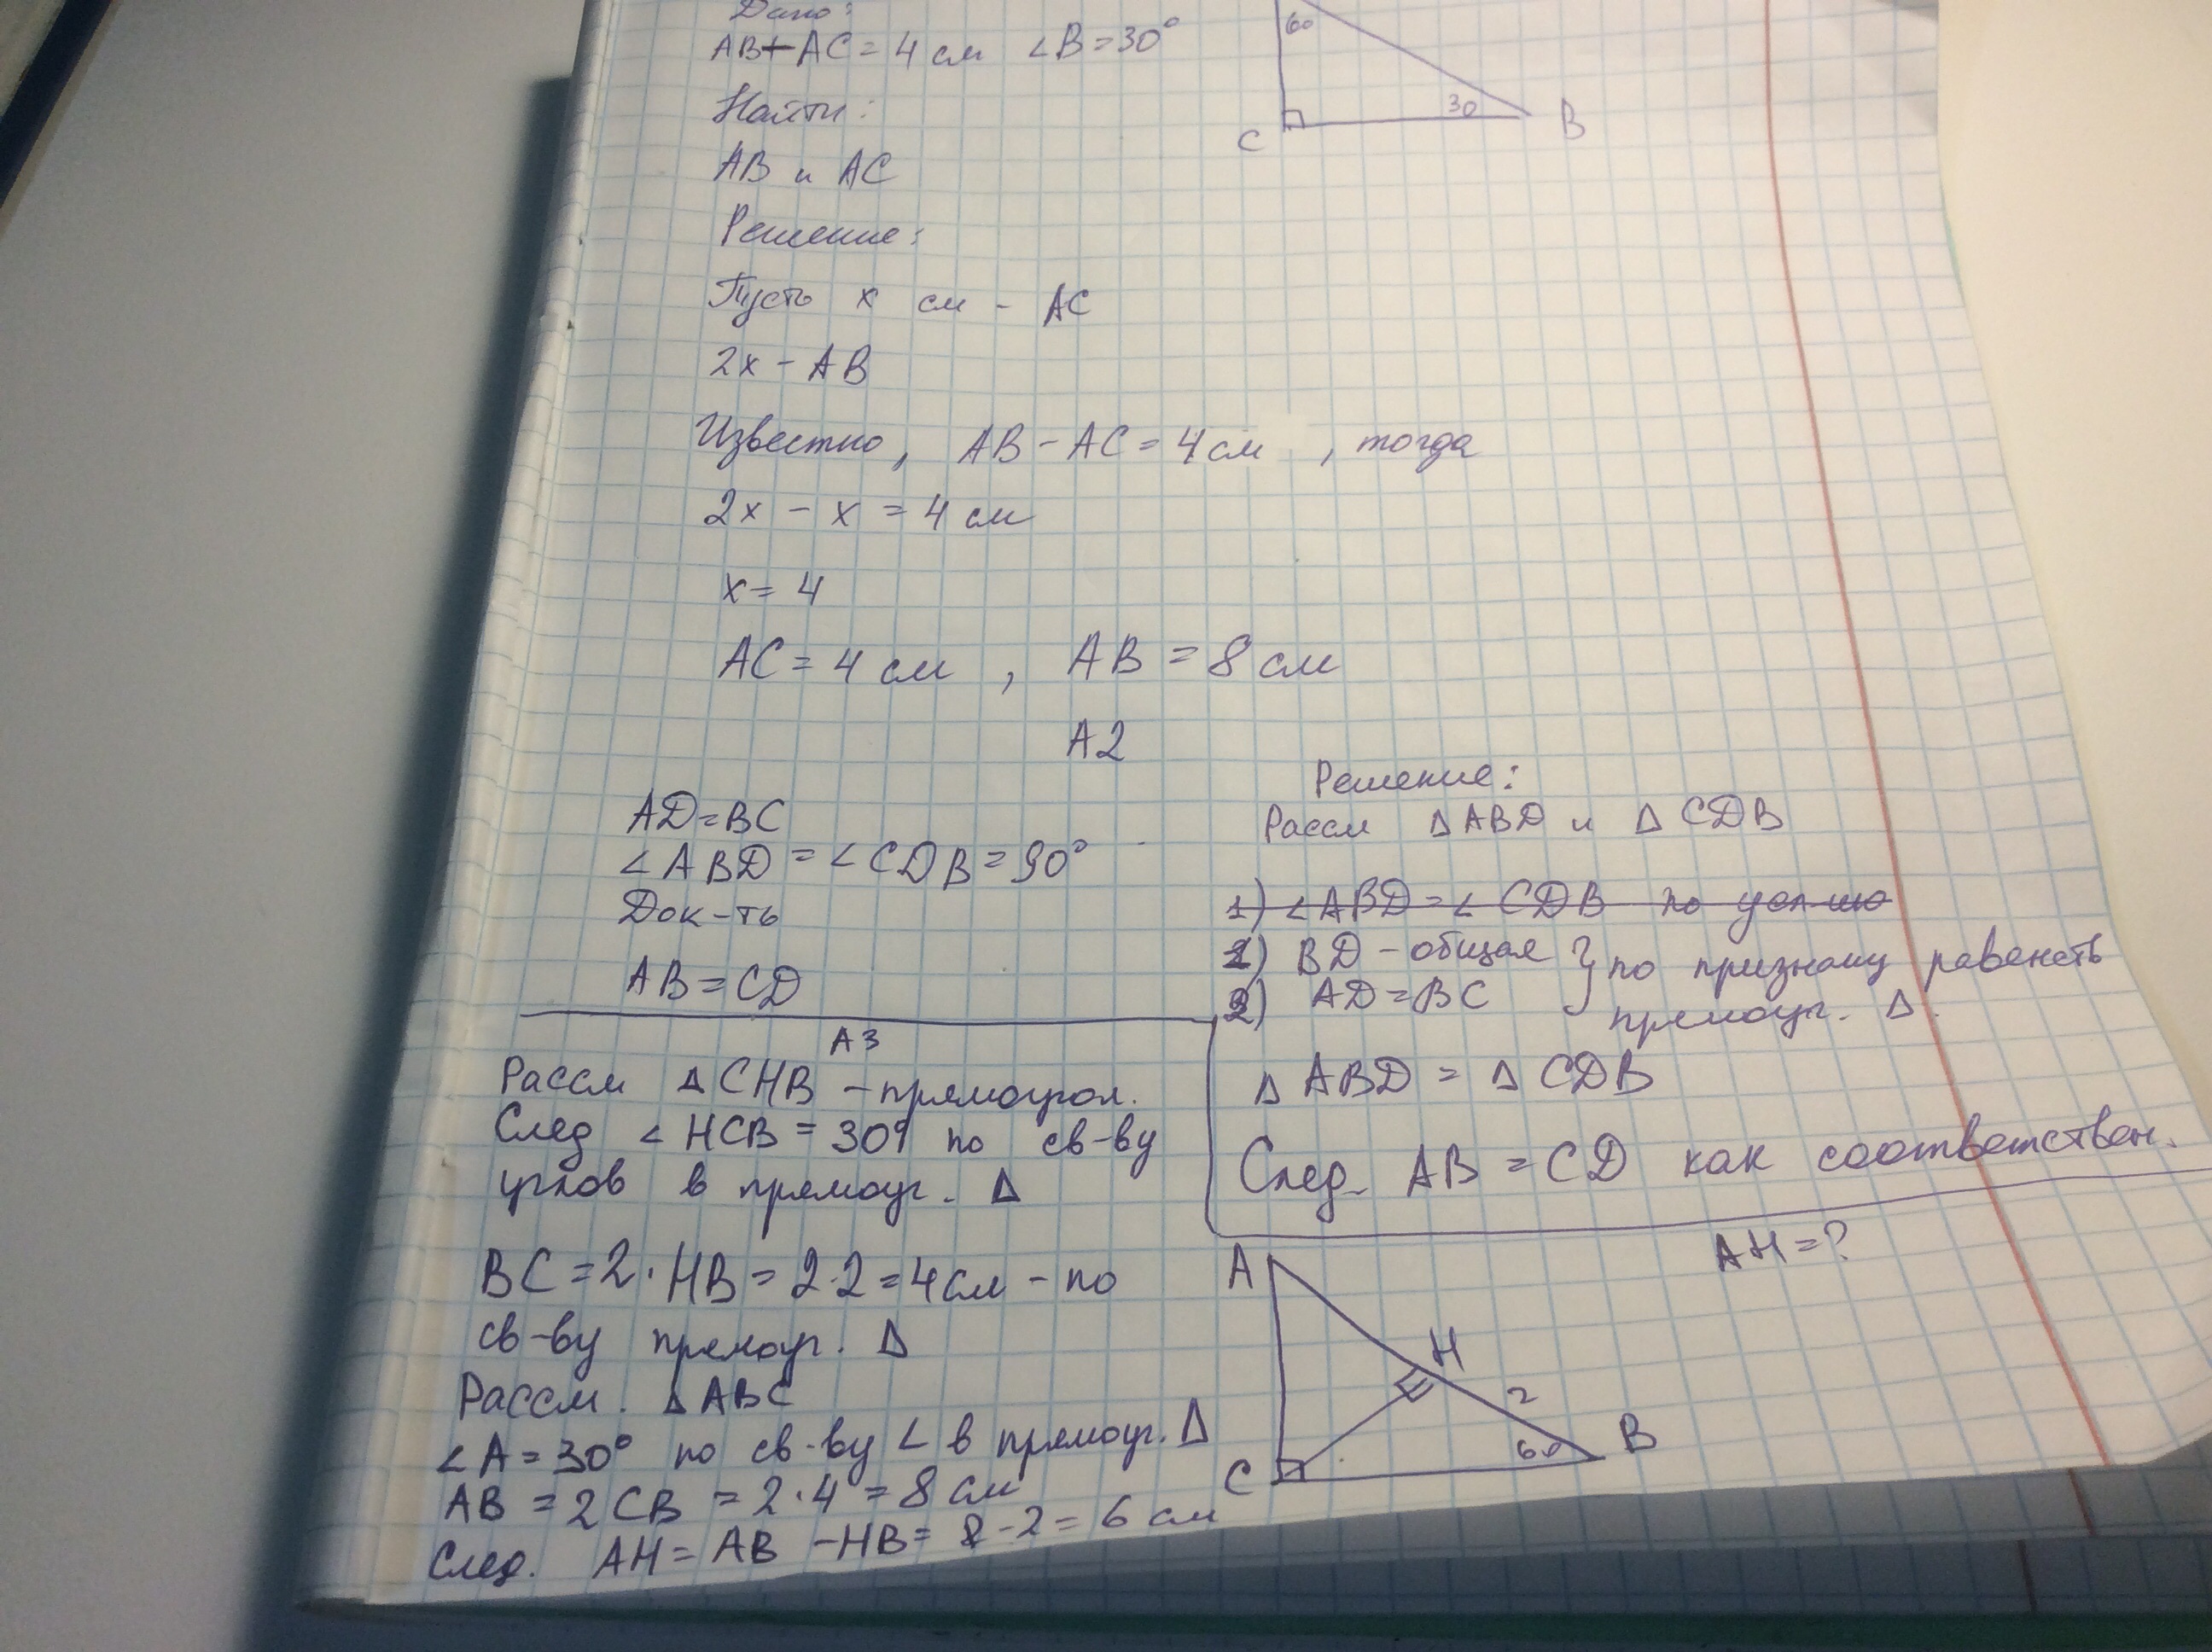 Дано:
AB+AC=4 см ∠B=30°
60
30
C
B
Найти:
AB и AC
Решение:
Пусть x см - AC
2x - AB
Известно, AB - AC = 4 см , тогда
2x - x = 4 см
x = 4
AC = 4 см , AB = 8 см
A2
AD=BC
∠ABD = ∠CDB = 90°
Док-ть
AB = CD
Решение:
Рассм Δ ABD и Δ CDB
1) ∠ABD=∠ CDB по усл-ию
1) BD - общая } по признаку равенств
2) AD=BC прямоуг. Δ.
Δ ABD = Δ CDB
След. AB = CD как соответствен.
A3
Рассм Δ CHB - прямоугол.
След ∠ HCB = 30° по св-ву
углов в прямоуг. Δ
BC = 2 · HB = 2·2 = 4 см - по
св-ву прямоуг. Δ
Рассм. Δ ABC
∠A = 30° по св-ву ∠ в прямоуг. Δ
AB = 2 CB = 2·4 = 8 см
След. AH = AB - HB = 8 - 2 = 6 см
AH = ?
A
H
2
60
B
C